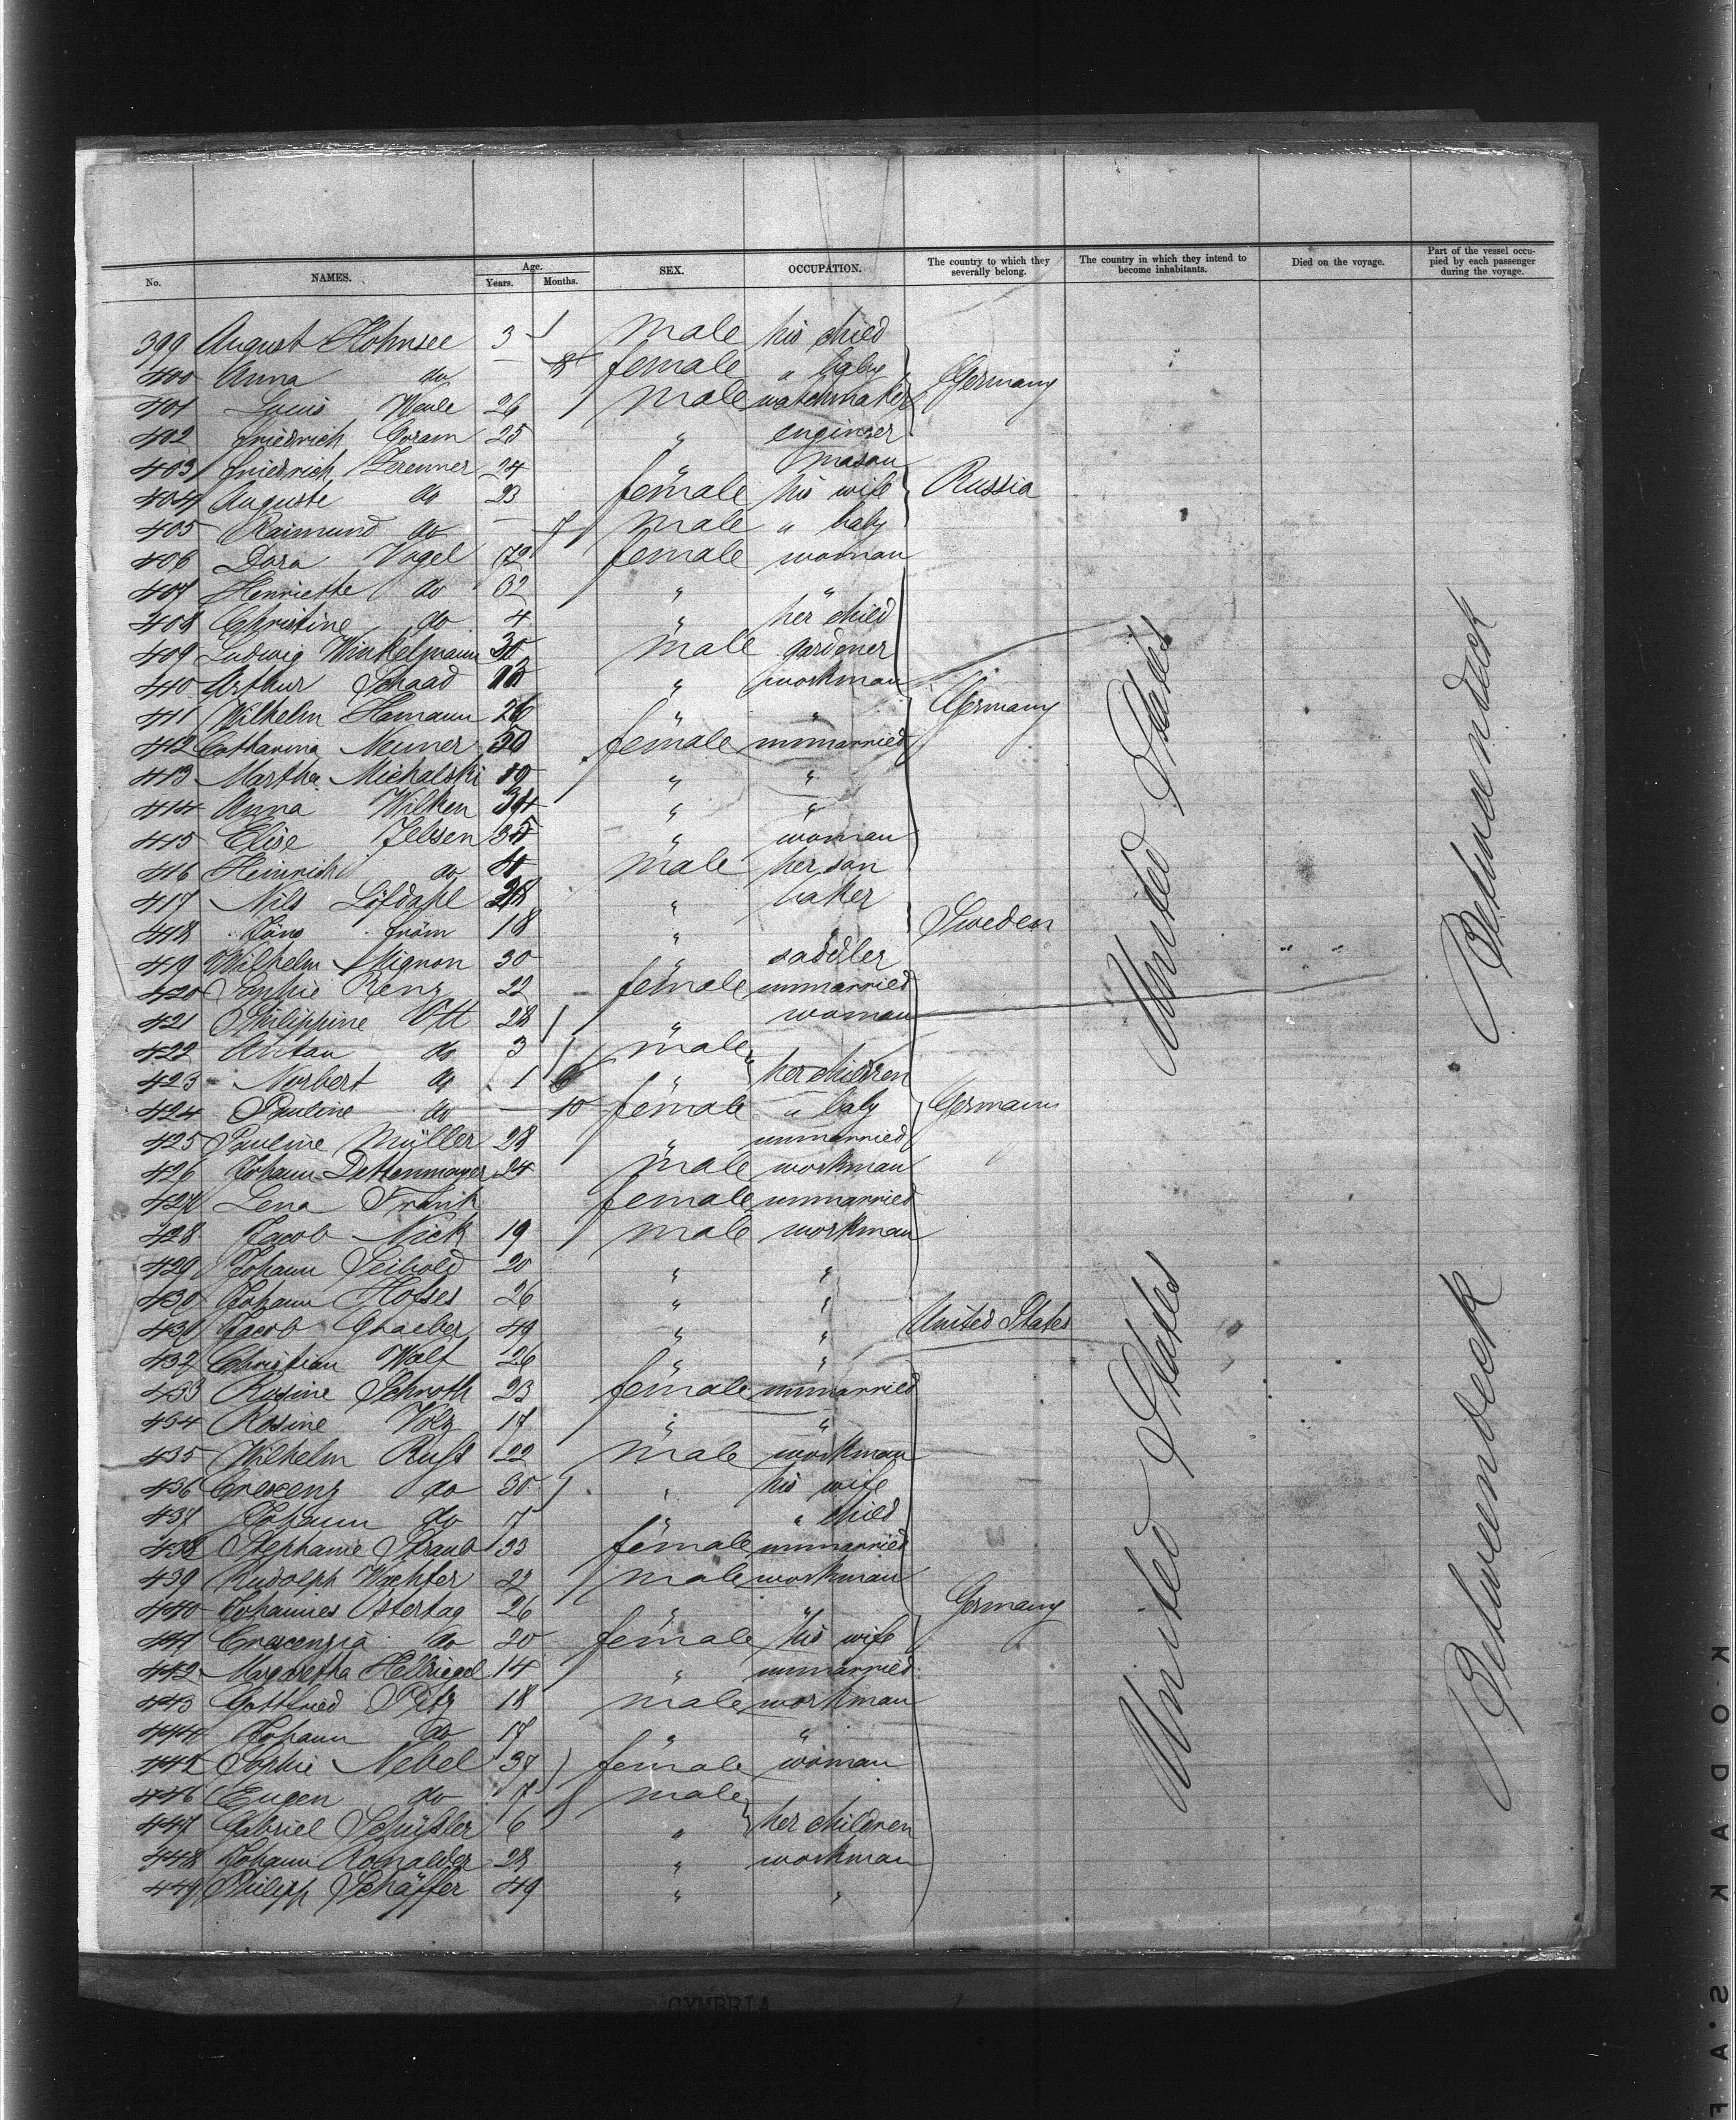 No. NAMES. Age. Years. Months. SEX. OCCUPATION. The country to which they severally belong. The country in which they intend to become inhabitants. Died on the voyage. Part of the vessel occupied by each passenger during the voyage.
399 August Hohnsee 3 male his child
400 Anna do — 8 female " baby
401 Louis Weule 26 male watchmaker Germany
402 Friedrich Goram 25 " engineer
403 Friedrich Zerenner 24 " mason
404 Auguste do 23 female his wife Russia
405 Raimund do — 7 male " baby
406 Dora Vogel 72 female woman
407 Henriette do 32 " "
408 Christine do 4 " her child
409 Ludwig Winkelmann 30 male gardener
410 Arthur Schaad " workman
411 Wilhelm Hamann 26 " " Germany
412 Catharina Neuner 20 female unmarried
413 Martha Michalski 19 " "
414 Anna Wilken 34 " "
415 Elise Jebsen 35 " woman
416 Heinrich do male her son
417 Nils Löfdahl " baker
418 Jöns Fröm 18 " " Sweden
419 Wilhelm Mignon 30 " saddler
420 Sophie Renz 22 female unmarried
421 Philippine Ott 28 " woman
422 Anton do 3 male
423 Norbert do 1 " her children
424 Pauline do — 10 female " baby Germany
425 Pauline Müller 28 " unmarried
426 Johann Dettenmayer 24 male workman
427 Lena Frank female unmarried
428 Jacob Nick 19 male workman
429 Johann Seibold 20 " "
430 Johann Hofses 26 " "
431 Jacob Graeber 49 " " United States
432 Christian Wolf 26 " "
433 Rosine Schroth 23 female unmarried
434 Rosine Volz 17 " "
435 Wilhelm Ruß 22 male workman
436 Crescenz do 30 " his wife
437 Johann do 7 " " child
438 Stephanie Straub 33 female unmarried
439 Rudolph Wachter 22 male workman
440 Johannes Ostertag 26 " " Germany
441 Crescenzia do 20 female his wife
442 Margaretha Hellriegel 14 " unmarried
443 Gottfried Pitz 18 male workman
444 Johann do 17 " "
445 Sophie Nebel 37 female woman
446 Eugen do 7 male
447 Gabriel Schüßler 6 " her children
448 Johann Romalder 28 " workman
449 Philipp Schäffer 49 " "
United States
United States
Betweendeck
Betweendeck
CYMBRIA
KODAK S.A.F